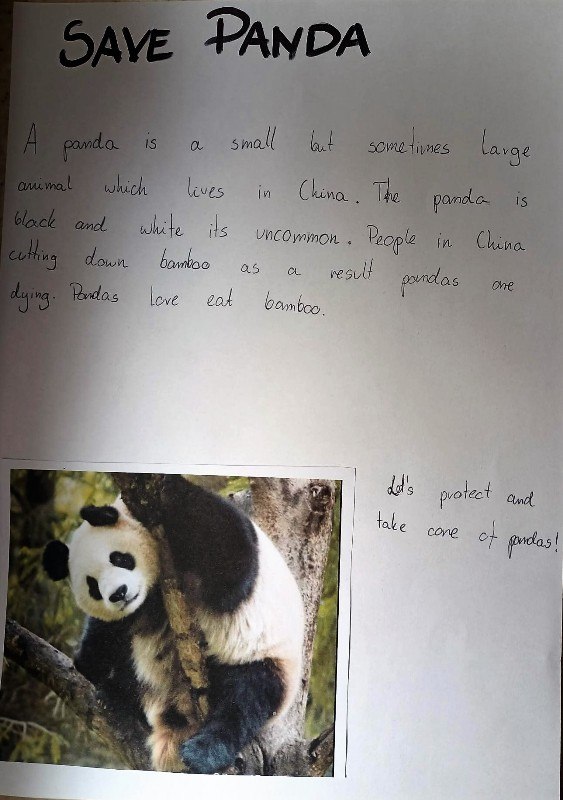 SAVE PANDA
A panda is a small but sometimes large
animal which lives in China. The panda is
black and white its uncommon. People in China
cutting down bamboo as a result pandas are
dying. Pandas love eat bamboo.
Let's protect and
take care of pandas!